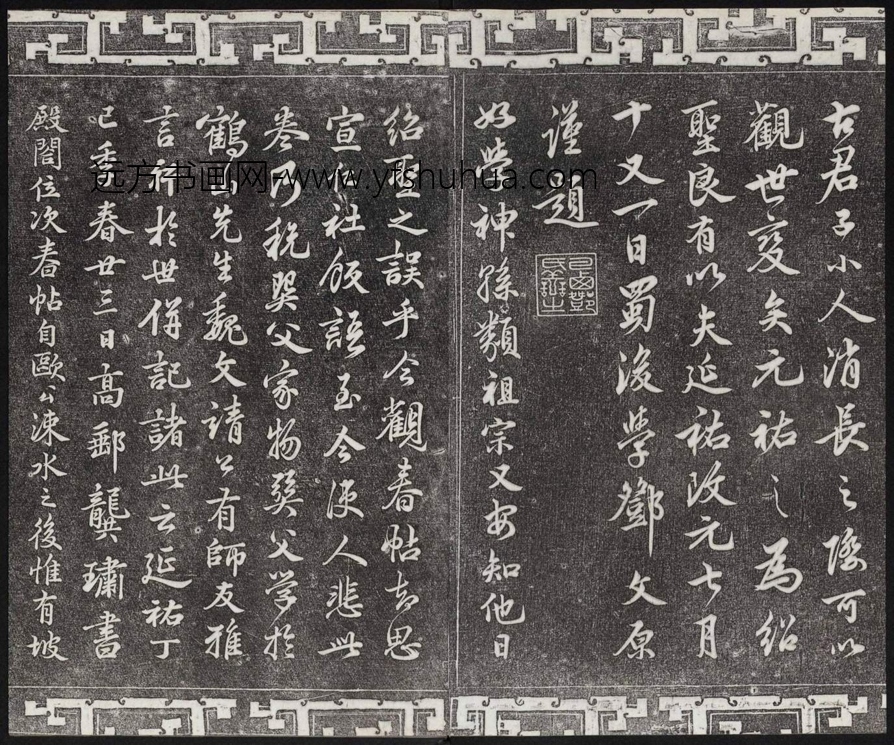 古君子小人消長之際可以
觀世變矣元祐之為紹
聖良有以夫延祐改元七月
十又一日蜀後學鄧文原
謹題
巴西鄧氏善之
神孫類祖宗又安知他日
紹聖之誤乎今觀春帖思
宣仁社飯語至今使人悲此
卷乃税巽父家物巽父學於
鶴山先生魏文靖公有師友雅
言行於世併記諸此云延祐丁
巳季春廿三日高郵龔璛書
殿閣位次春帖自歐公涑水之後惟有坡
远方书画网-www.yfshuhua.com